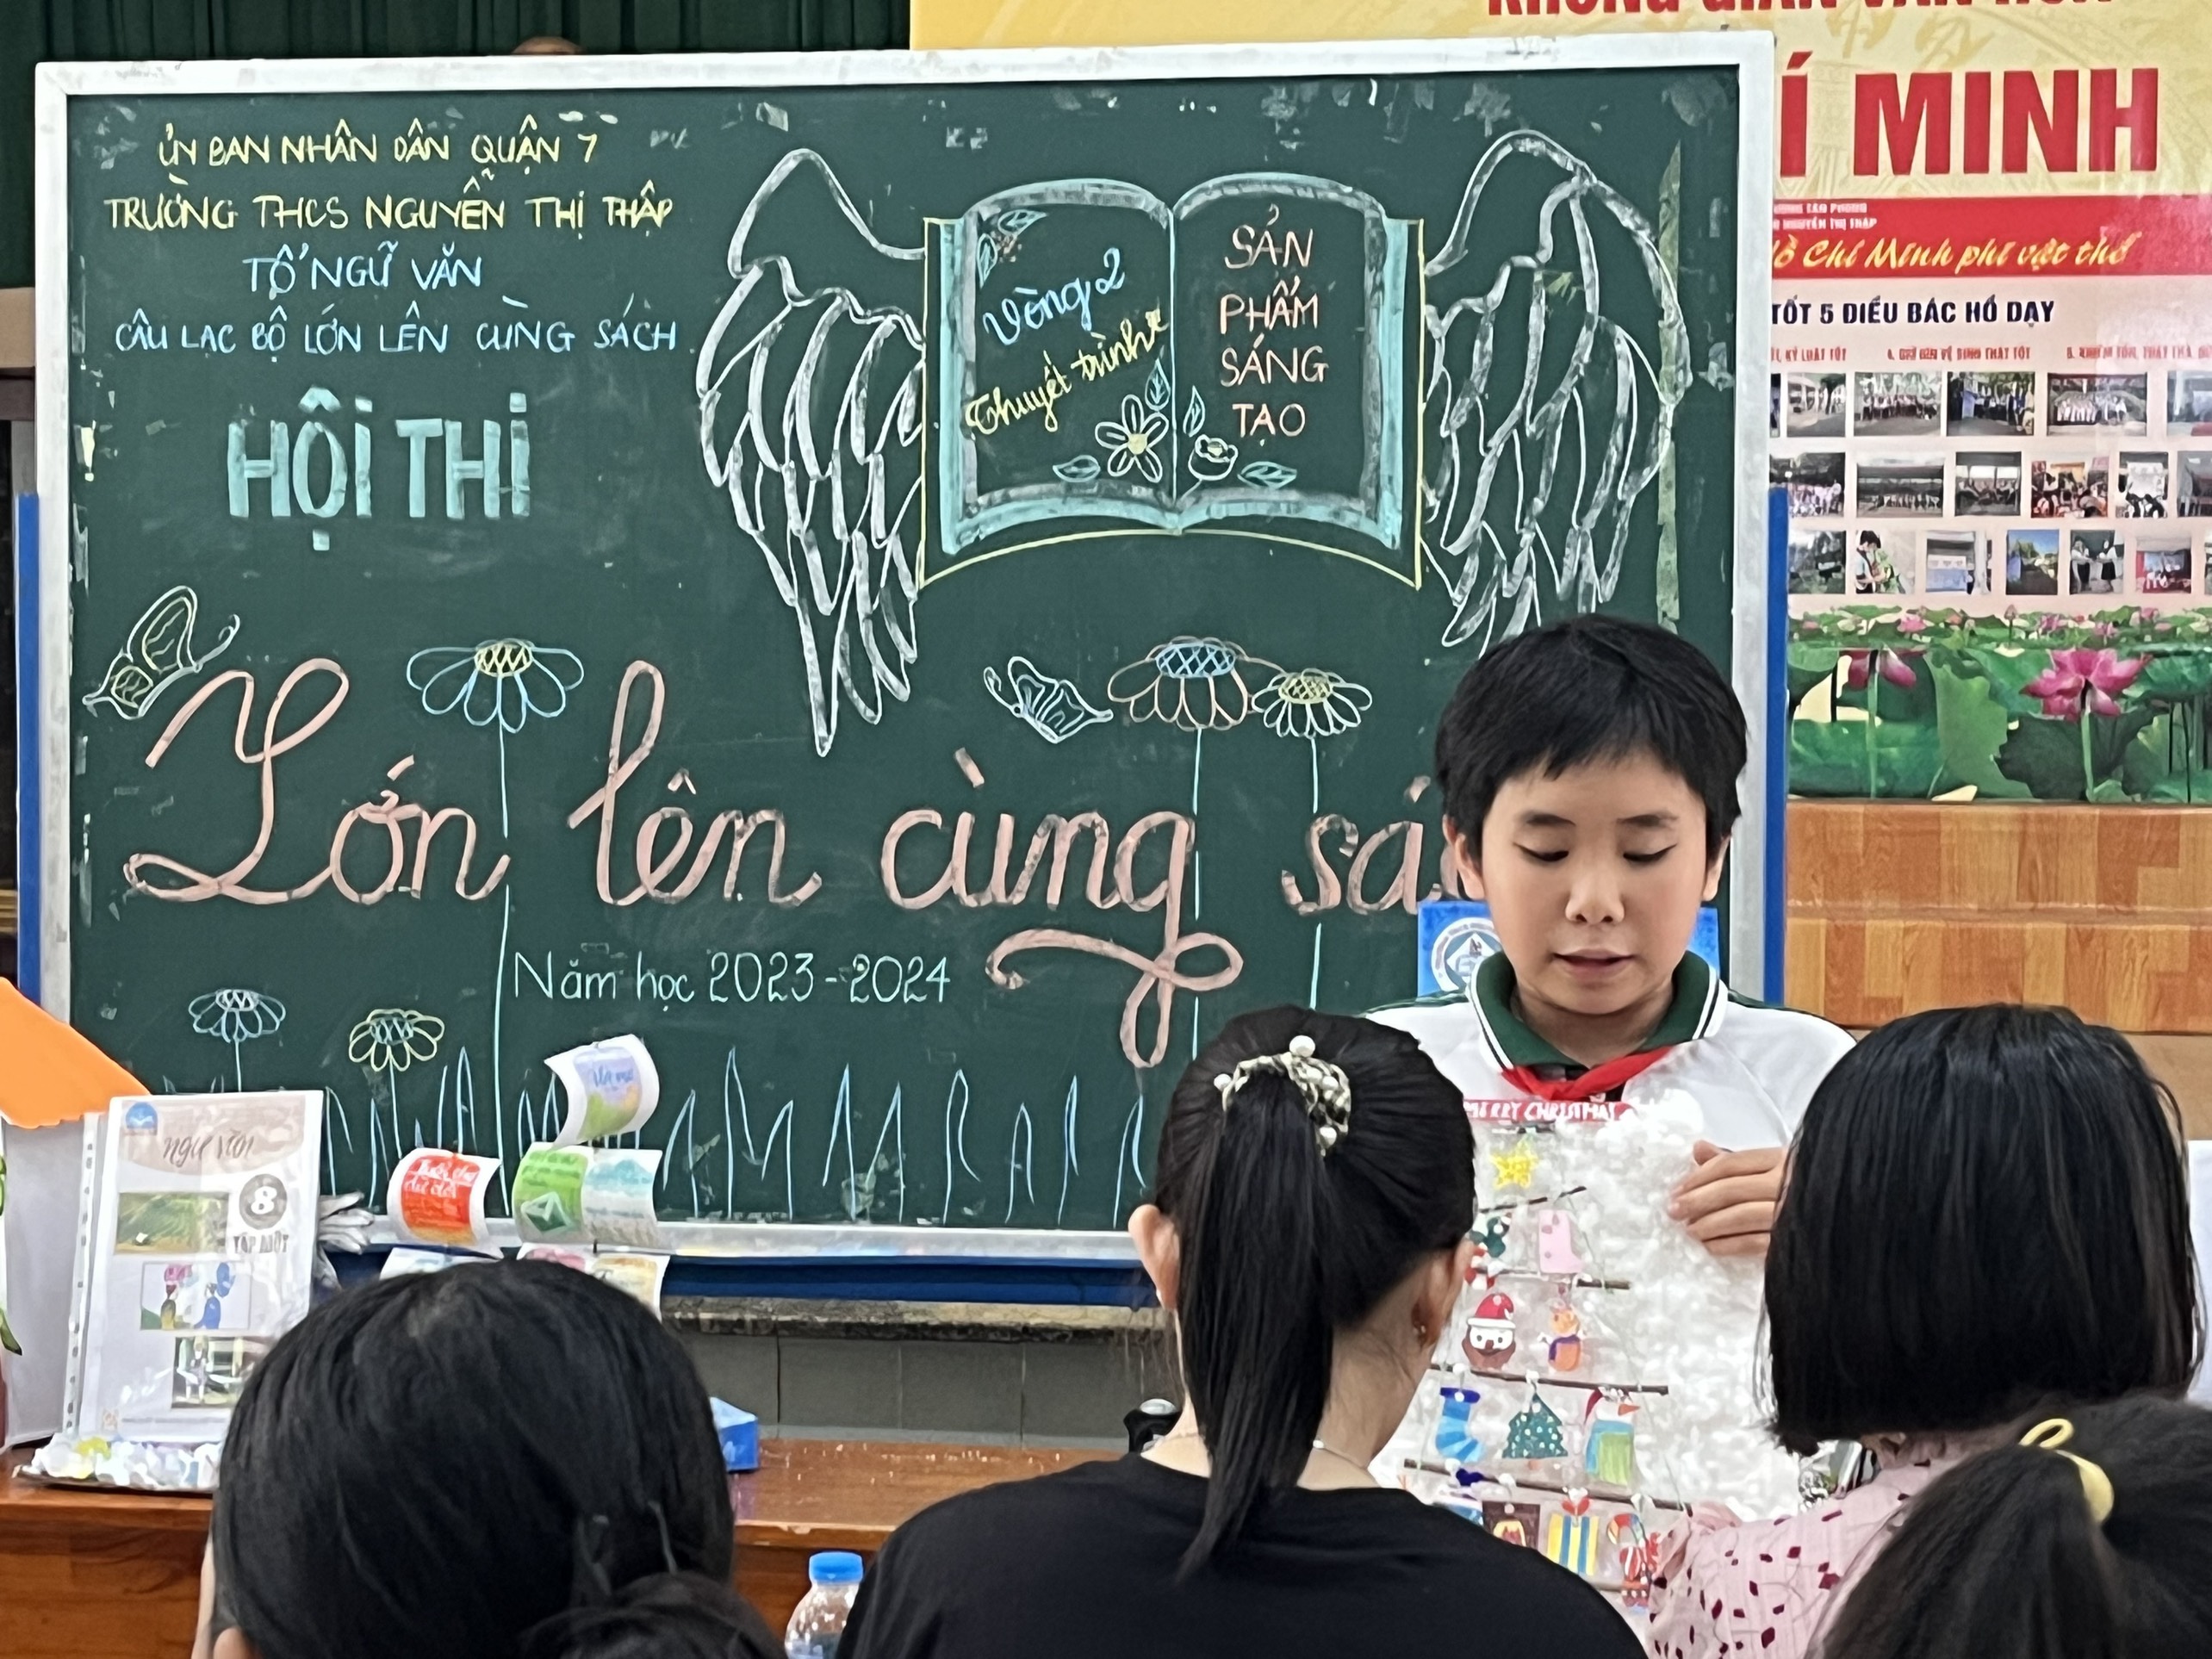 ỦY BAN NHÂN DÂN QUẬN 7
TRƯỜNG THCS NGUYỄN THỊ THẬP
TỔ NGỮ VĂN
CÂU LẠC BỘ LỚN LÊN CÙNG SÁCH
HỘI THI
Vòng 2
Thuyết trình
SẢN
PHẨM
SÁNG
TẠO
Lớn lên cùng
Năm học 2023-2024
Í MINH
Hồ Chí Minh phi vật thể
TỐT 5 ĐIỀU BÁC HỒ DẠY
NGUYỄN THỊ THẬP
ngữ văn
8
TẬP MỘT
MERRY CHRISTMAS